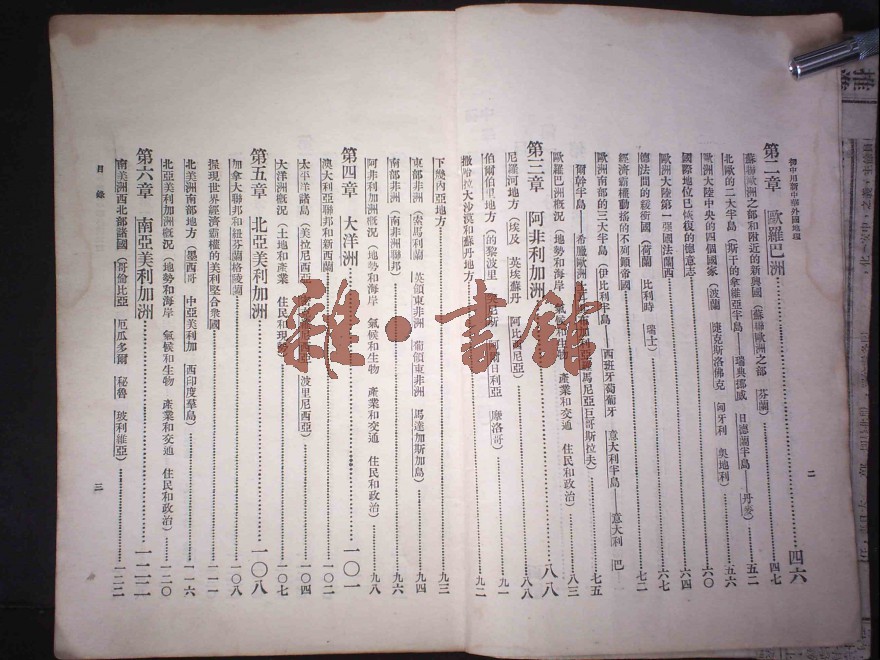 初中用新中華外國地理
二
第二章 歐羅巴洲……四六
蘇聯歐洲之部和附近的新興國（蘇聯歐洲之部 芬蘭）……四七
北歐的二大半島（斯干的拿維亞半島——瑞典挪威 日德蘭半島——丹麥）……五二
歐洲大陸中央的四個國家（波蘭 捷克斯洛佛克 匈牙利 奧地利）……五六
國際地位已恢復的德意志……六〇
歐洲大陸第一强國法蘭西……六四
德法間的緩衝國（荷蘭 比利時 瑞士）……六七
經濟霸權動搖的不列顛帝國……七二
歐洲南部的三大半島（伊比利半島——西班牙葡萄牙 意大利半島——意大利 巴
爾幹半島——希臘歐洲 羅馬尼亞巨哥斯拉夫）……七五
歐羅巴洲概況（地勢和海岸 氣候和生物 產業和交通 住民和政治）……八三
第三章 阿非利加洲……八八
尼羅河地方（埃及 英埃蘇丹 阿比西尼亞）……八八
伯爾伯里地方（的黎波里 尼斯 阿爾日利亞 摩洛哥）……九一
撒哈拉大沙漠和蘇丹地方……九二
下幾內亞地方……九三
東部非洲（索馬利蘭 英領東非洲 葡領東非洲 馬達加斯加島）……九四
南部非洲（南非洲聯邦）……九六
阿非利加洲概況（地勢和海岸 氣候和生物 產業和交通 住民和政治）……九八
第四章 大洋洲……一〇一
澳大利亞聯邦和新西蘭……一〇二
太平洋諸島（美拉尼西亞 波里尼西亞）……一〇四
大洋洲概況（土地和產業 住民和現勢）……一〇七
第五章 北亞美利加洲……一〇八
加拿大聯邦和紐芬蘭格陵蘭……一〇八
握現世界經濟霸權的美利堅合衆國……一一一
北美洲南部地方（墨西哥 中亞美利加 西印度羣島）……一一六
北亞美利加洲概況（地勢和海岸 氣候和生物 產業和交通 住民和政治）……一二〇
第六章 南亞美利加洲……一二二
南美洲西北部諸國（哥倫比亞 厄瓜多爾 秘魯 玻利維亞）……一二二
目錄
三
雅·書館